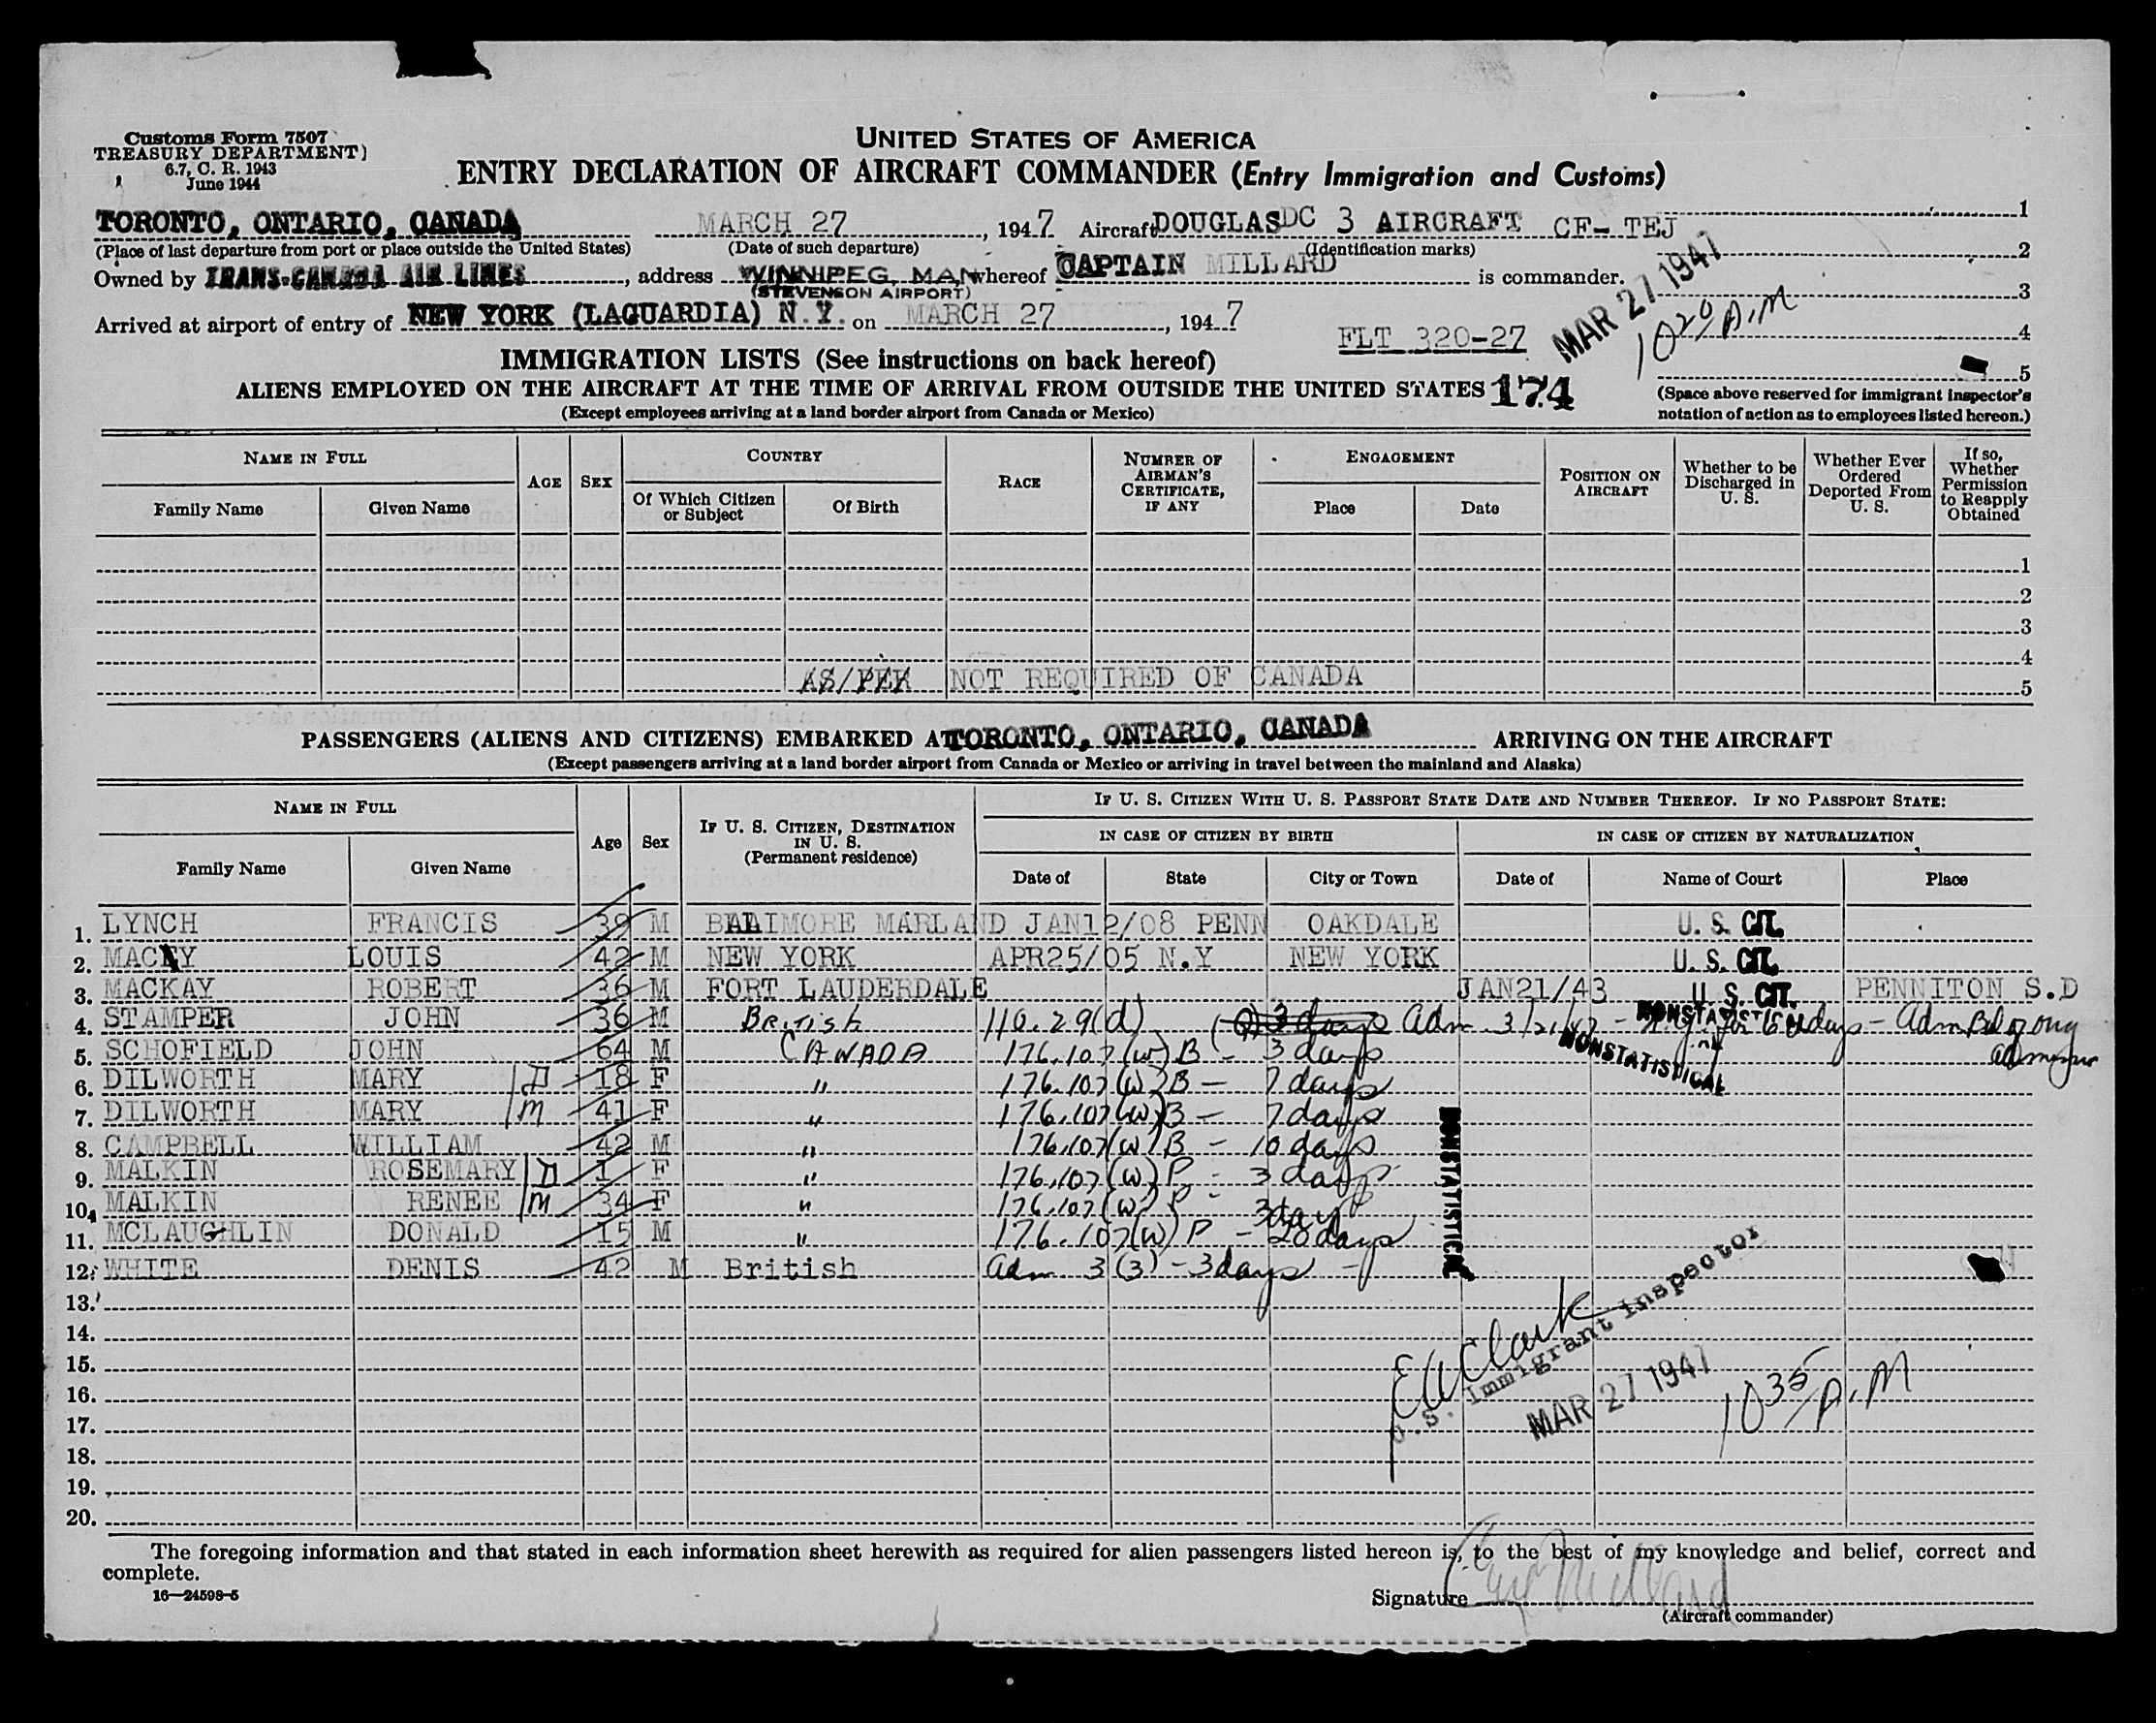 Customs Form 7507
TREASURY DEPARTMENT)
6.7, C. R. 1943
June 1944
UNITED STATES OF AMERICA
ENTRY DECLARATION OF AIRCRAFT COMMANDER (Entry Immigration and Customs)
TORONTO, ONTARIO, CANADA MARCH 27, 1947 Aircraft DOUGLAS DC 3 AIRCRAFT CF- TEJ 1
(Place of last departure from port or place outside the United States) (Date of such departure) (Identification marks) 2
Owned by TRANS-CANADA AIR LINES, address WINNIPEG, MAN whereof CAPTAIN MILLARD is commander.
(STEVENSON AIRPORT) MAR 27 1947 3
Arrived at airport of entry of NEW YORK (LAGUARDIA) N.Y. on MARCH 27, 1947 FLT 320-27 1020/A.M 4
IMMIGRATION LISTS (See instructions on back hereof) 5
ALIENS EMPLOYED ON THE AIRCRAFT AT THE TIME OF ARRIVAL FROM OUTSIDE THE UNITED STATES 174 (Space above reserved for immigrant inspector's
(Except employees arriving at a land border airport from Canada or Mexico) notation of action as to employees listed hereon.)
NAME IN FULL AGE SEX COUNTRY RACE NUMBER OF AIRMAN'S CERTIFICATE, IF ANY ENGAGEMENT POSITION ON AIRCRAFT Whether to be Discharged in U. S. Whether Ever Ordered Deported From U. S. If so, Whether Permission to Reapply Obtained
Family Name Given Name Of Which Citizen or Subject Of Birth Place Date
1
2
3
4
AS/PER NOT REQUIRED OF CANADA 5
PASSENGERS (ALIENS AND CITIZENS) EMBARKED AT TORONTO, ONTARIO, CANADA ARRIVING ON THE AIRCRAFT
(Except passengers arriving at a land border airport from Canada or Mexico or arriving in travel between the mainland and Alaska)
NAME IN FULL Age Sex IF U. S. CITIZEN, DESTINATION IN U. S. (Permanent residence) IF U. S. CITIZEN WITH U. S. PASSPORT STATE DATE AND NUMBER THEREOF. IF NO PASSPORT STATE:
IN CASE OF CITIZEN BY BIRTH IN CASE OF CITIZEN BY NATURALIZATION
Family Name Given Name Date of State City or Town Date of Name of Court Place
1. LYNCH FRANCIS 39 M BALIMORE MARLAND JAN12/08 PENN OAKDALE U. S. CIT.
2. LOUIS 42 M NEW YORK APR25/05 N.Y NEW YORK U. S. CIT.
3. MACKAY ROBERT 36 M FORT LAUDERDALE JAN21/43 U. S. CIT. PENNITON S.D
4. STAMPER JOHN 36 M British 110.29(d) 3 days Adm 3/21/47 - NONSTATISTICAL 60 days - Adm
5. SCHOFIELD JOHN 64 M CANADA 176.107(w)B - 3 days NONSTATISTICAL
6. DILWORTH MARY D 18 F " 176.107(w)B - 7 days
7. DILWORTH MARY M 41 F " 176.107(w)B - 7 days
8. CAMPBELL WILLIAM 42 M " 176.107(w)B - 10 days
9. MALKIN ROSEMARY D 1 F " 176.107(w)P - 3 days
10. MALKIN RENEE M 34 F " 176.107(w)P - 3 days
11. MCLAUGHLIN DONALD 15 M " 176.107(w)P - 20 days
12. WHITE DENIS 42 M British Adm. 3(3) - 3 days -
NONSTATISTICAL
13.
14.
15.
16.
17.
18.
19.
20.
Clark
U. S. Immigrant Inspector
MAR 27 1947 1035/A.M
The foregoing information and that stated in each information sheet herewith as required for alien passengers listed hereon is, to the best of my knowledge and belief, correct and
complete.
16—24598-5
Signature Millard
(Aircraft commander)